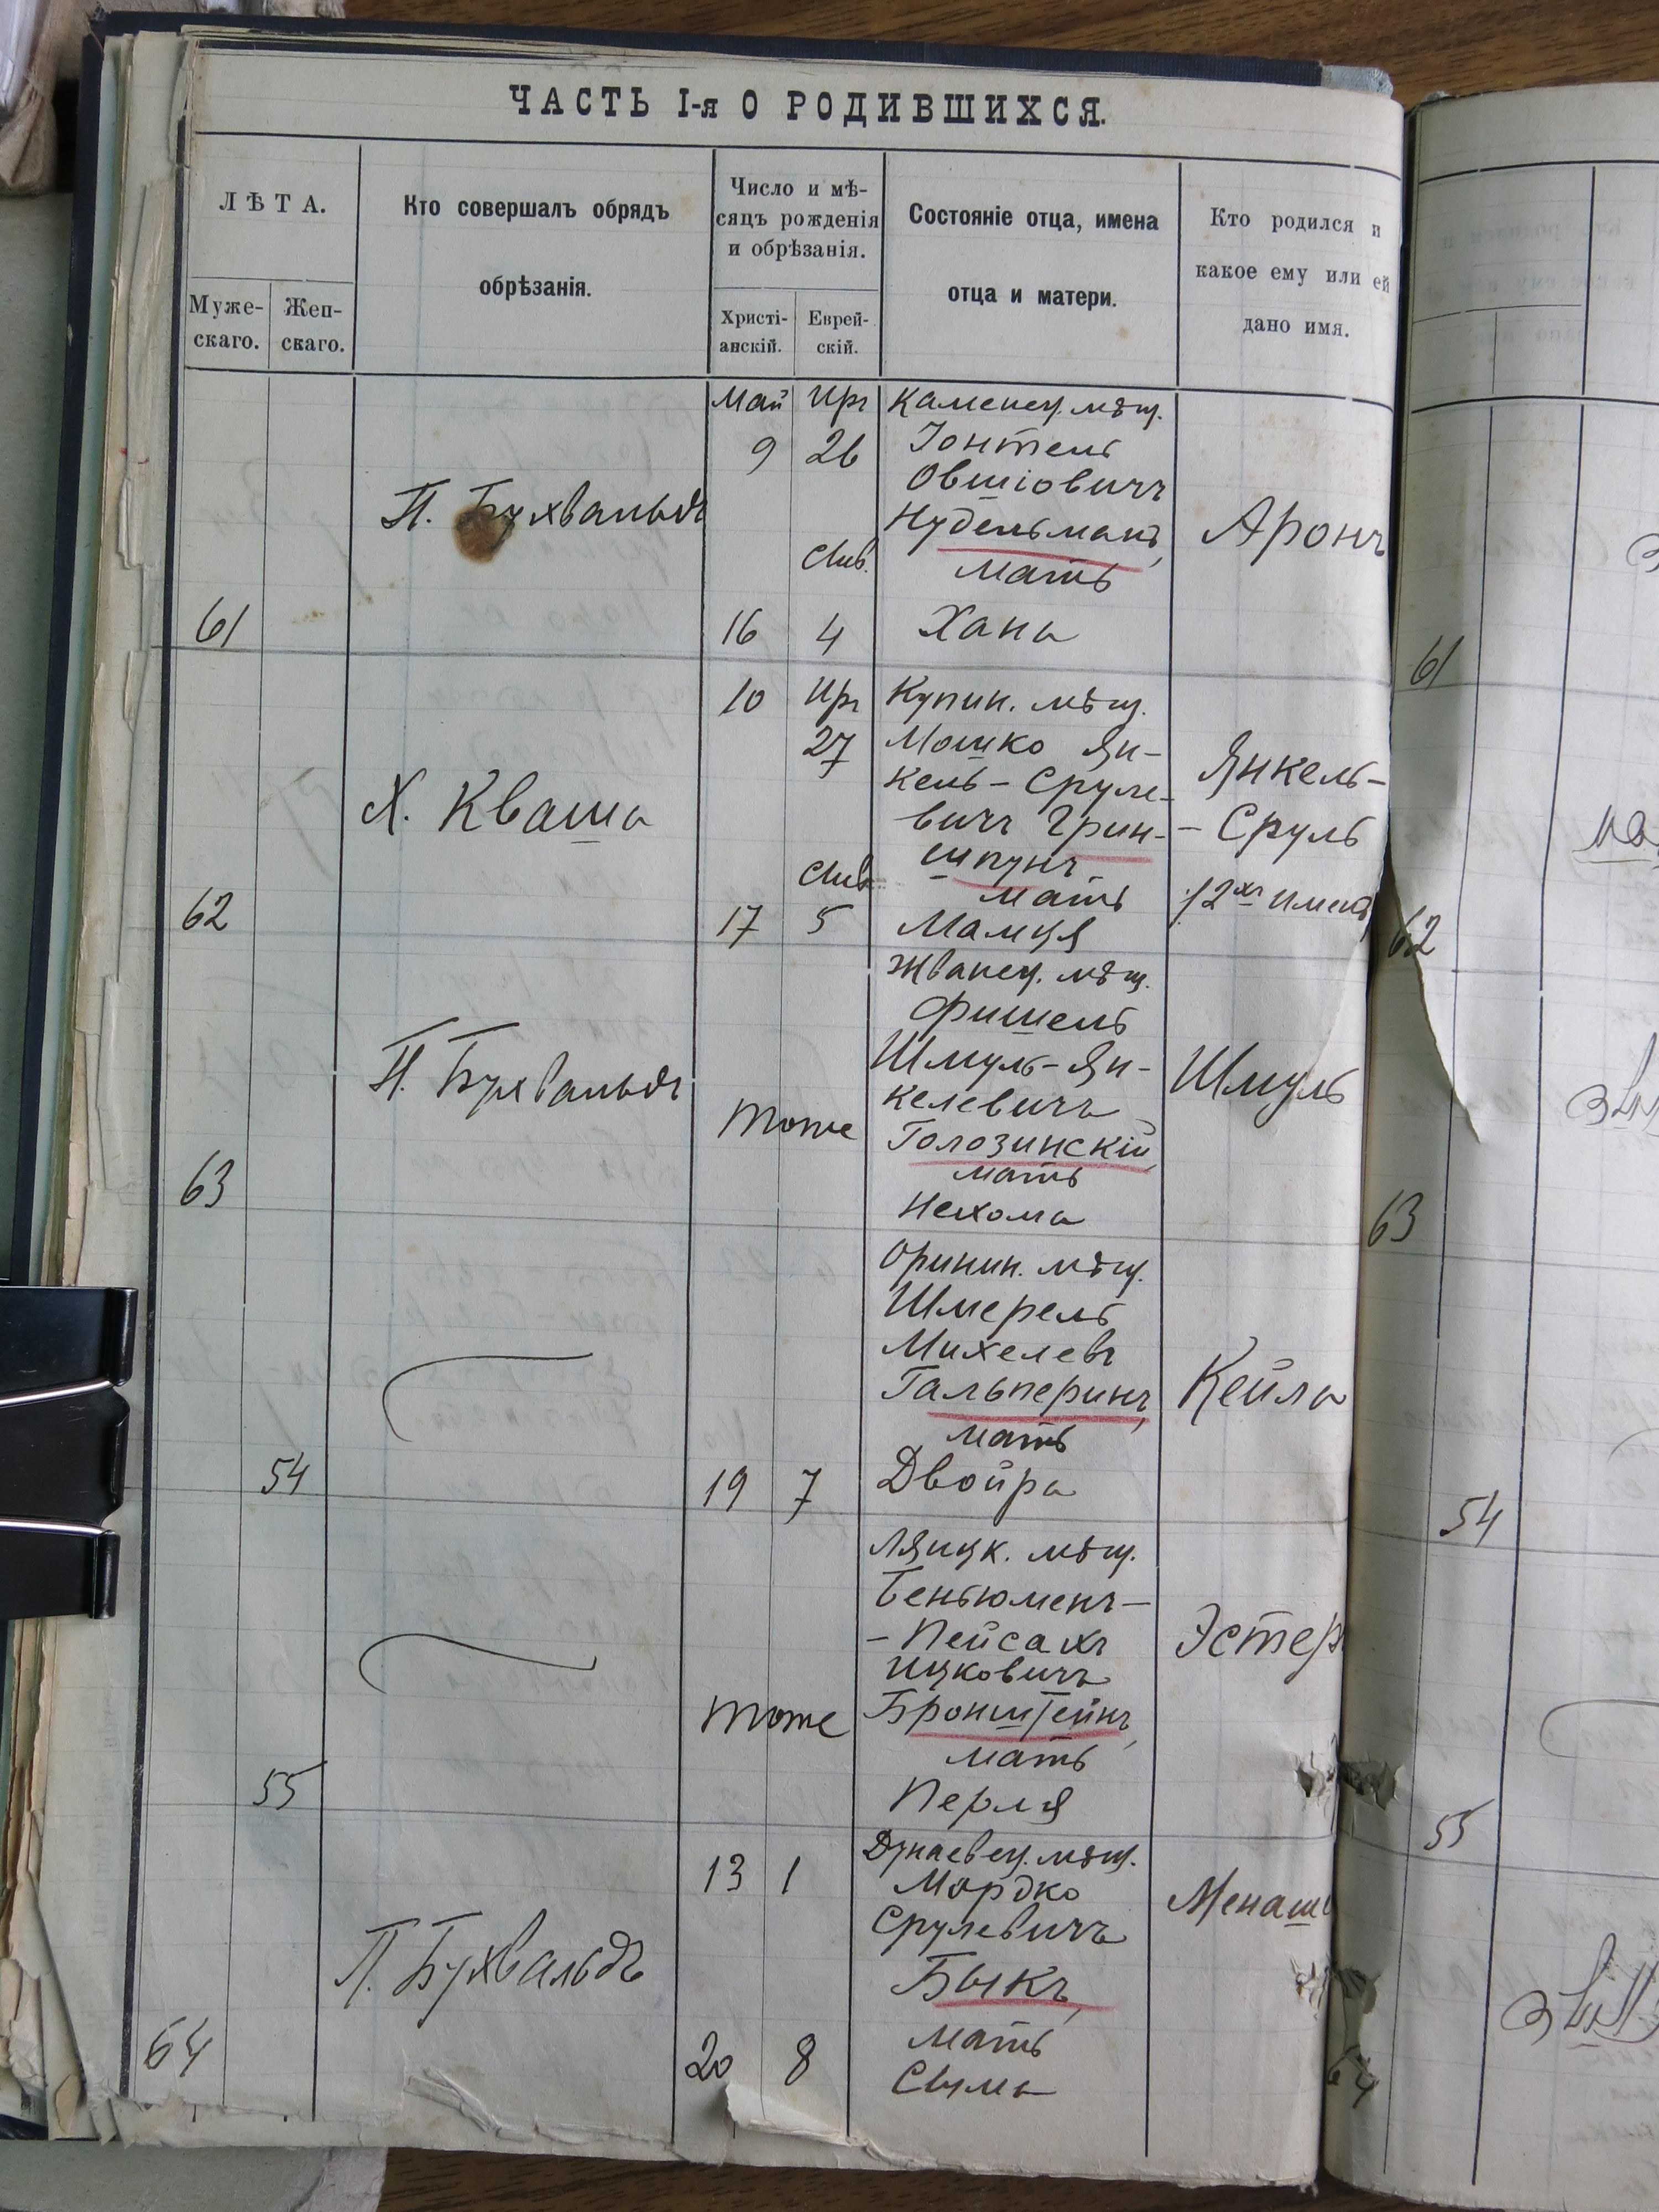 ЧАСТЬ I-я О РОДИВШИХСЯ.
ЛѢТА.
Муже-
скаго.
Жен-
скаго.
Кто совершалъ обрядъ
обрѣзанія.
Число и мѣ-
сяцъ рожденія
и обрѣзанія.
Христі-
анскій.
Еврей-
скій.
Состояніе отца, имена
отца и матери.
Кто родился и
какое ему или ей
дано имя.
61
П. Бухвальдъ
Май Ирг
9 26
Сив.
16 4
Каменец. мѣщ.
Іонтель
Овшіовичъ
Нудельманъ,
мать
Хана
Аронъ
61
62
Х. Кваша
10 Ирг
27
Сив.
17 5
Купин. мѣщ.
Мошко Ян-
кель-Сруле-
вичъ Грин-
шпунъ
мать
Мамця
Янкель-
-Сруль
/2хъ имена
62
63
П. Бухвальдъ
тоже
Жванец. мѣщ.
Фишель
Шмуль-Ян-
келевичъ
Голозинскій,
мать
Нехома
Шмуль
63
54
19 7
Оринин. мѣщ.
Шмерель
Михелевъ
Гальперинъ,
мать
Двойра
Кейла
54
55
тоже
Ляцк. мѣщ.
Беньюменъ-
-Пейсахъ
Ицковичъ
Бронштейнъ,
мать
Перля
Эстер
55
64
П. Бухвальдъ
13 1
20 8
Дунаевец. мѣщ.
Мордко
Срулевичъ
Быкъ,
мать
Сума
Менаше
64